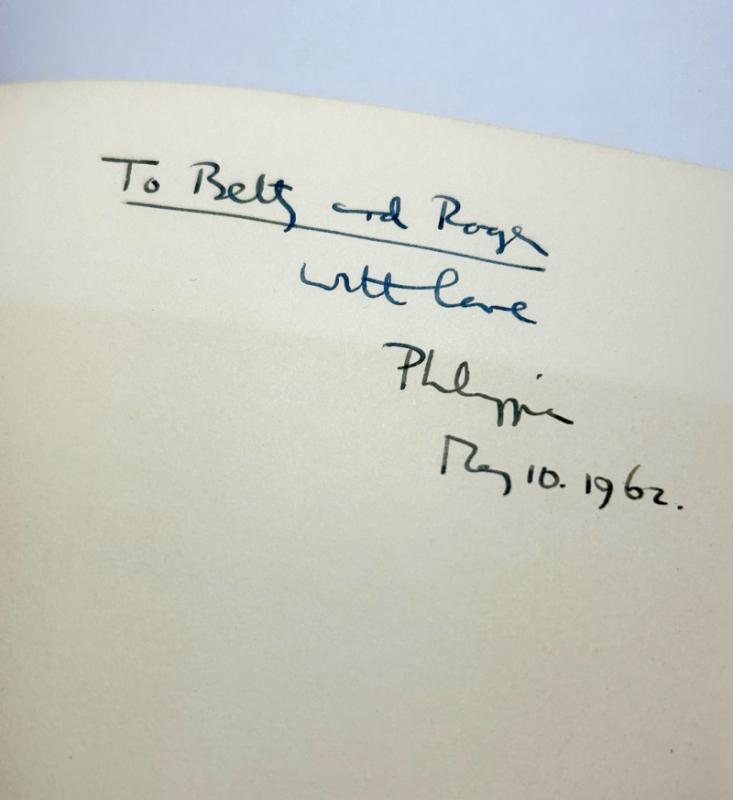 To Betty and Roger
with love
Philippa
May 10. 1962.